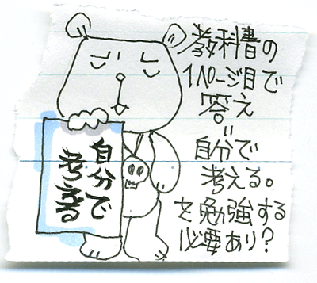 教科書の
1ページ目で
答え
"
自分で
考える。
を勉強する
必要あり?
自分で
考える